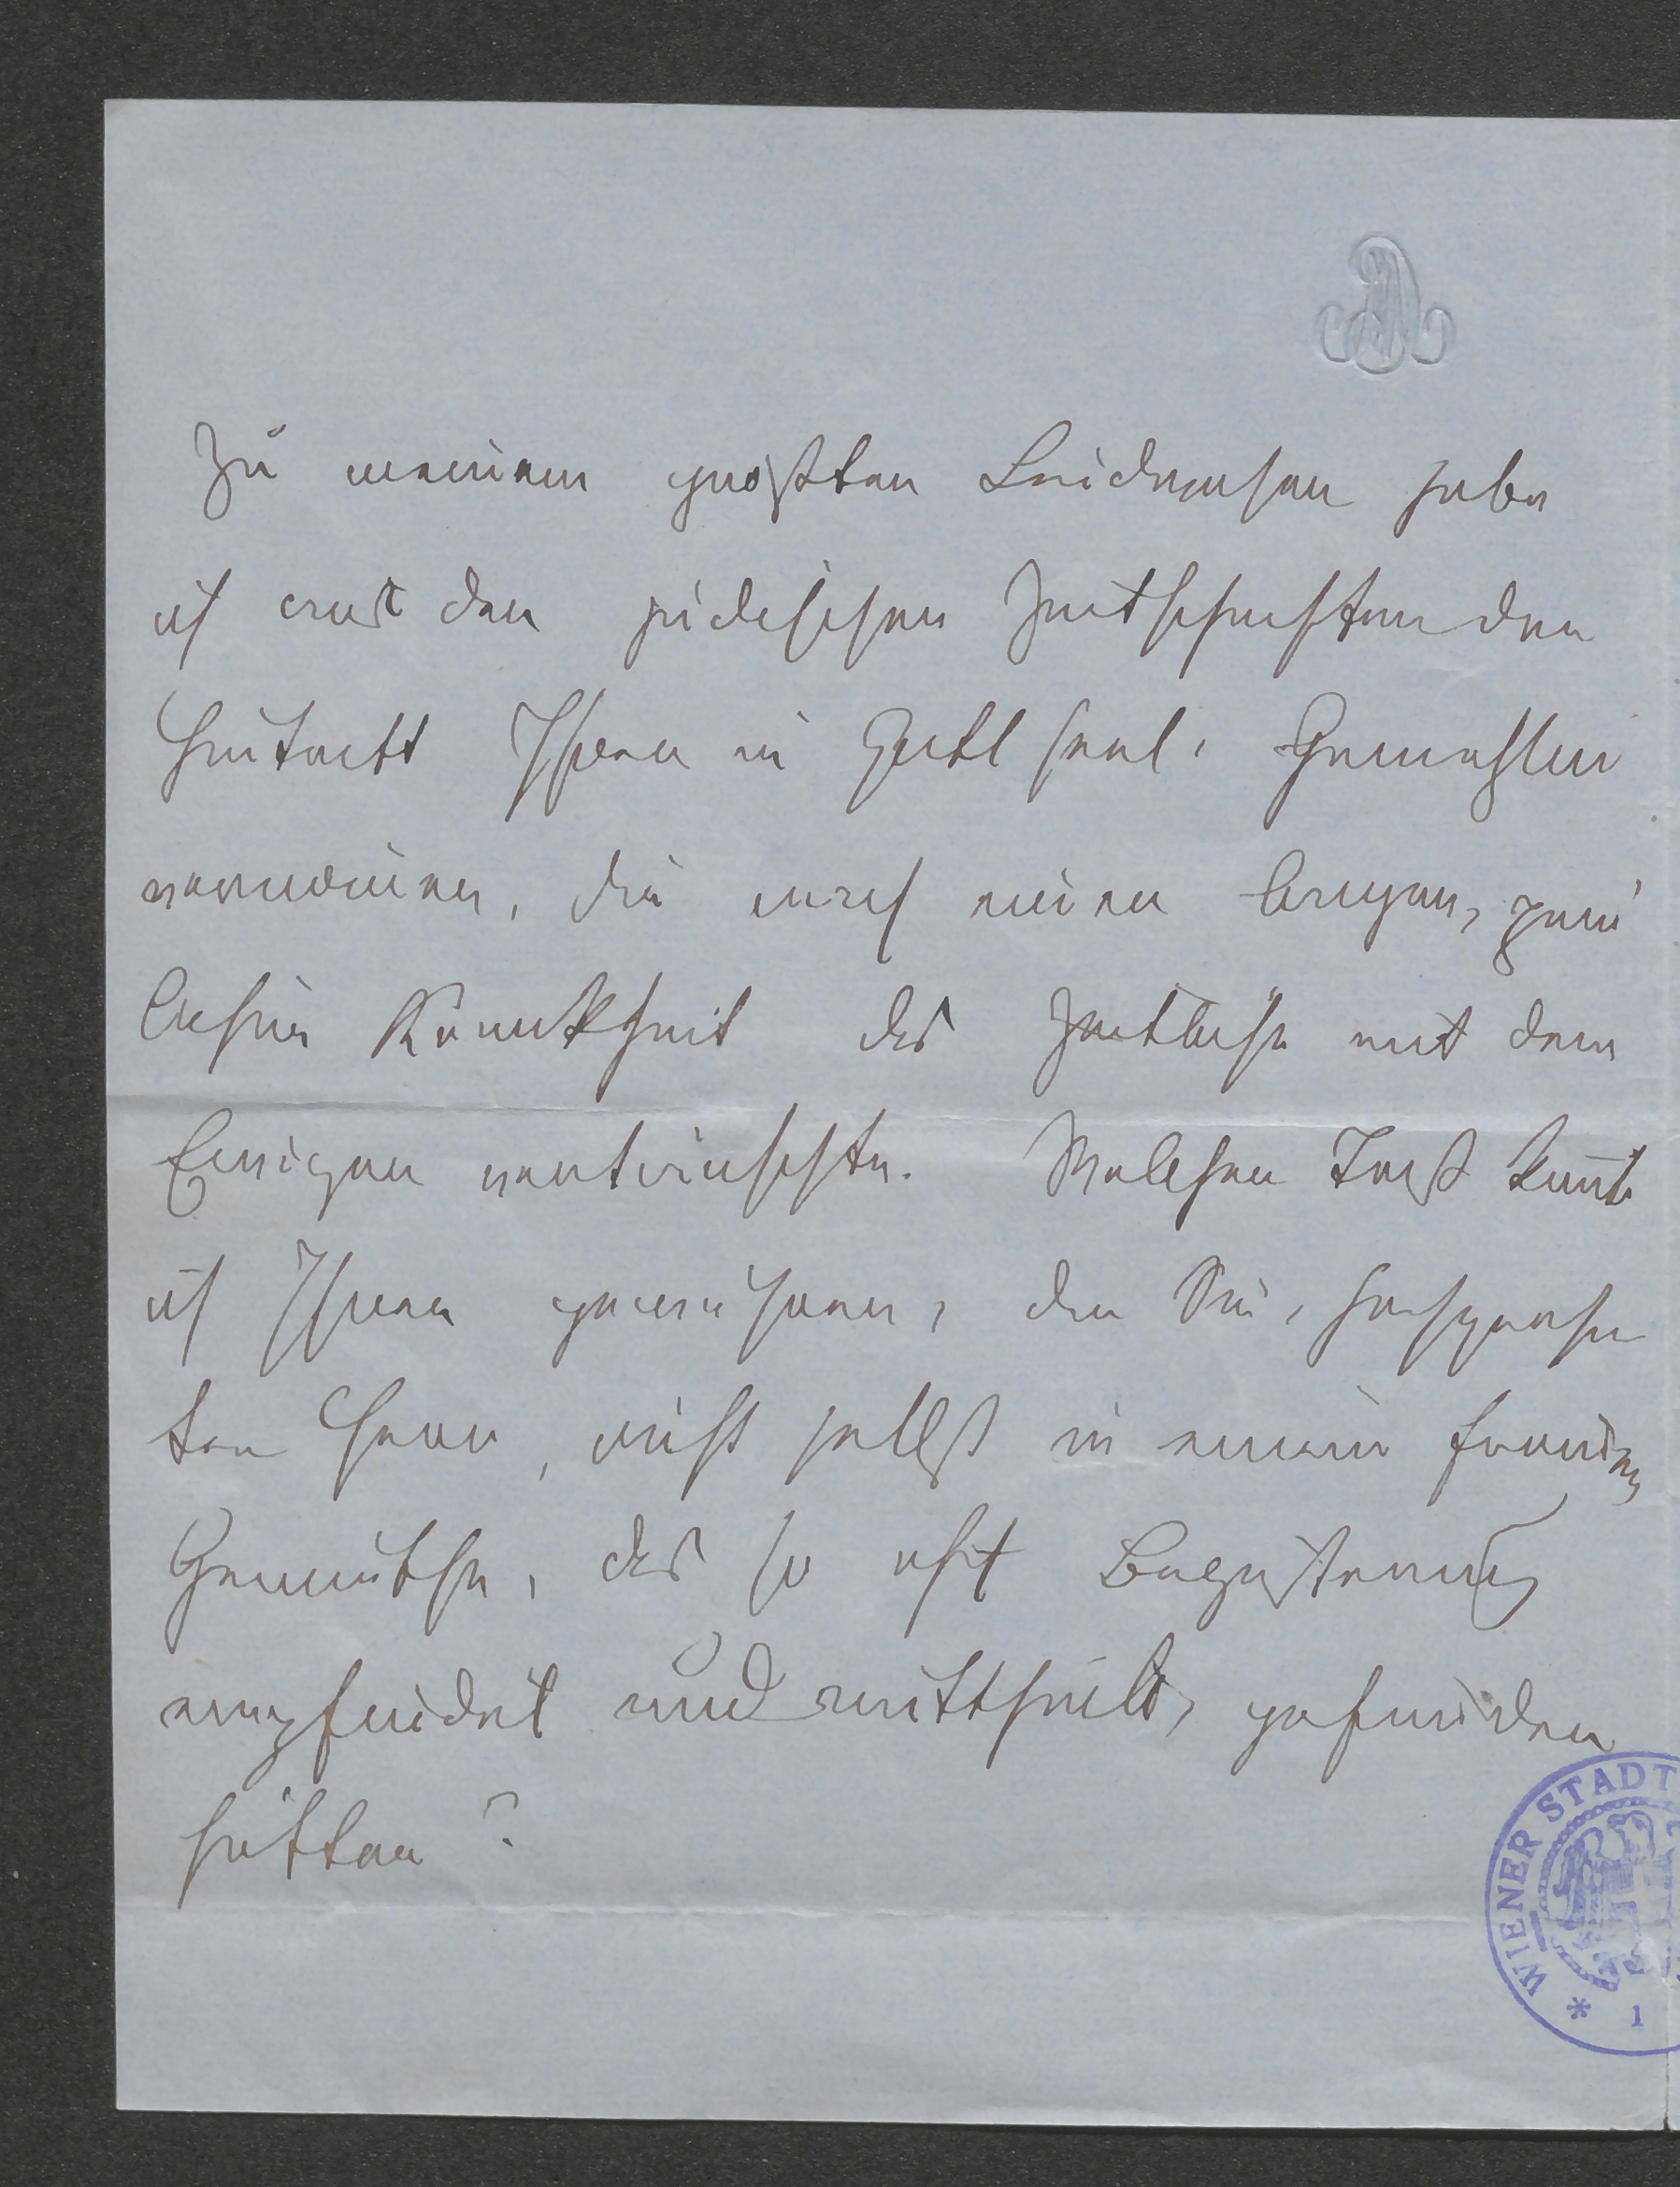 Zu meinem größten Leidwesen habe
ich aus den jüdischen Zeitschriften den
Hintritt Ihrer in Gott seel. Gemahlin
vernommen, die nach einer langen, pein
lichen Krankheit das Zeitliche mit dem
Ewigen vertauschte. Welchen Trost kann
ich Ihnen gewähren, den Sie, hochgeehr
ter Herr, nicht selbst in einem frommen
Gemüthe, das so oft Begeisterung
empfindet und mittheilt, gefunden
hätten?
WIENER STADT
* 1